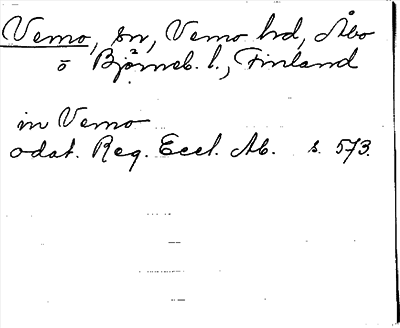 Vemo, sn, Vemo hd, Åbo
o Björneb. l., Finland
in Vemo
odat. Reg. Eccl. Ab. s. 573.